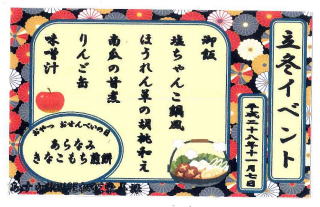 立冬イベント
平成二十八年十一月七日
御飯
塩ちゃんこ鍋風
ほうれん草の胡桃和え
南瓜の甘煮
りんご缶
味噌汁
おやつ おせんべいの日
あらなみ
きなこもち煎餅